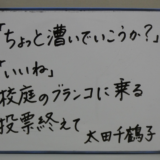 「ちょっと漕いでいこうか?」
「いいね」
校庭のブランコに乗る
投票終えて
太田千鶴子